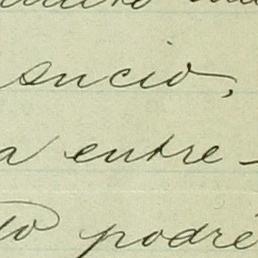 sucio,
a entre-
to podré